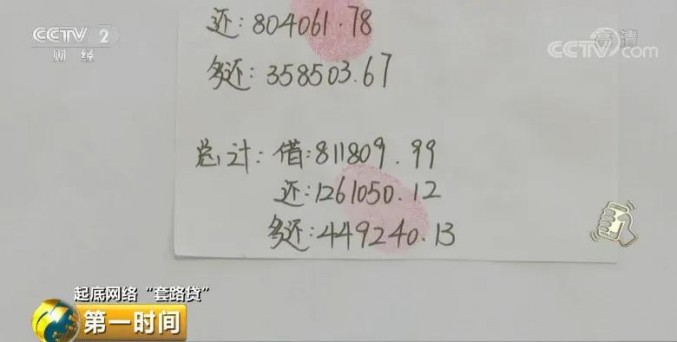 CCTV 2
财经
还:804061.78
多还:358503.67
CCTV.com
高清
总计:借:811809.99
还:1261050.12
多还:449240.13
起底网络“套路贷”
第一时间